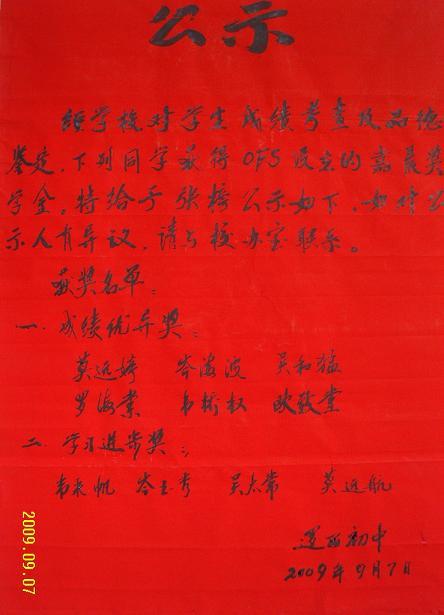 公示
经学校对学生成绩考查及品德
鉴定，下列同学获得OFS设立的嘉晨奖
学金。特给予张榜公示如下，如对公
示人有异议，请与校办室联系。
获奖名单：
一、成绩优异奖：
莫远婷 岑海波 吴和猛
罗海業 韦桥权 欧致堂
二、学习进步奖：
韦秋帆 岑玉秀 吴志常 莫远航
逻西初中
2009年9月7日
2009.09.07